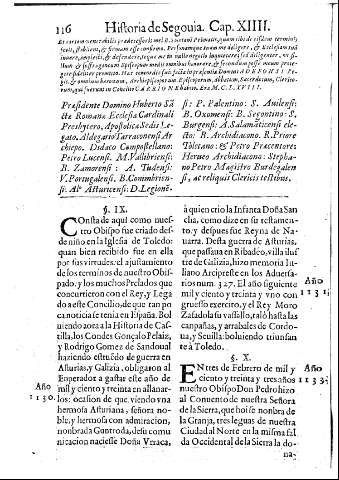 116 Historia de Segouia. Cap. XIIII.
Presidente Domino Huberto Sã
ctæ Romanæ Ecclesiæ Cardinali
Presbytero, Apostolicæ Sedis Le
gato. Aldegario Tarraconensi Ar
chiepo. Didaco Compostellano:
Petro Lucensi. M. Vallibriensi:
B. Zamorensi: A. Tudensi:
V. Portugalensi. B. Conimbrien-
si. Al° Asturicensi: D. Legionẽ-
si: P. Palentino: S. Auilensi:
B. Oxomensi: B. Segontino: S.
Burgensi: A. Salamãticensi ele-
cto: R. Archidiacono. R. Priore
Toletano: & Petro Præcentore:
Herueo Archidiacono: Stepha-
no Petro Magistro Burdegalen
si, ac reliquis Clericis testibus.
§. IX.
Consta de aqui como nues-
tro Obispo fue criado des-
de niño en la Iglesia de Toledo:
quan bien recibido fue en ella
por sus virtudes: el ajustamiento
de los terminos de nuestro Obis-
pado, y los muchos Prelados que
concurrieron con el Rey, y Lega
do a este Concilio, de que tan po
ca noticia se tenia en España. Bol
uiendo aora a la Historia de Cas-
tilla, los Condes Gonçalo Pelaiz,
y Rodrigo Gomez de Sandoual
haziendo estruẽdo de guerra en
Asturias, y Galizia, obligaron al
Emperador a gastar este año de
mil y ciento y treinta en allanar-
los: ocasion de que viendo vna
hermosa Asturiana, señora no-
ble, y hermosa con admiracion,
nombrada Guntroda, desu comu
nicacion naciesse Doña Vrraca,
Año
1130.
à quien crio la Infanta Doña San
cha, como dize en su testamen-
to, y despues fue Reyna de Na-
uarra. Desta guerra de Asturias,
que passaua en Ribadeo, villa ilus
tre de Galizia, hizo memoria Iu-
liano Arcipreste en los Aduersa-
rios num. 327. El año siguiente
mil y ciento y treinta y vno con
gruesso exercito, y el Rey Moro
Zafadola su vassallo, talò hasta las
canpañas, y arrabales de Cordo-
ua, y Seuilla: boluiendo triunfan
te à Toledo.
Año
1131.
§. X.
Entres de Febrero de mil y
ciento y treinta y tres años
nuestro Obispo Don Pedro hizo
al Conuento de nuestra Señora
de la Sierra, que hoi se nonbra de
la Granja, tres leguas de nuestra
Ciudad al Norte en la misma fal
da Occidental de la Sierra la do-
na-
Año
1133.